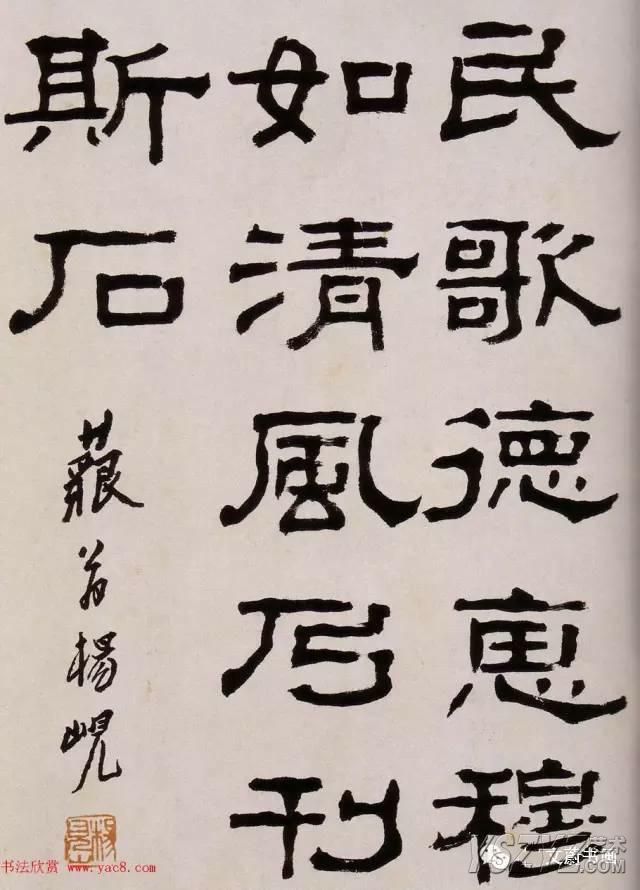 民歌德惠穆
如清風乃刊
斯石
藐翁楊峴
书法欣赏 www.yac8.com
文蔚书画